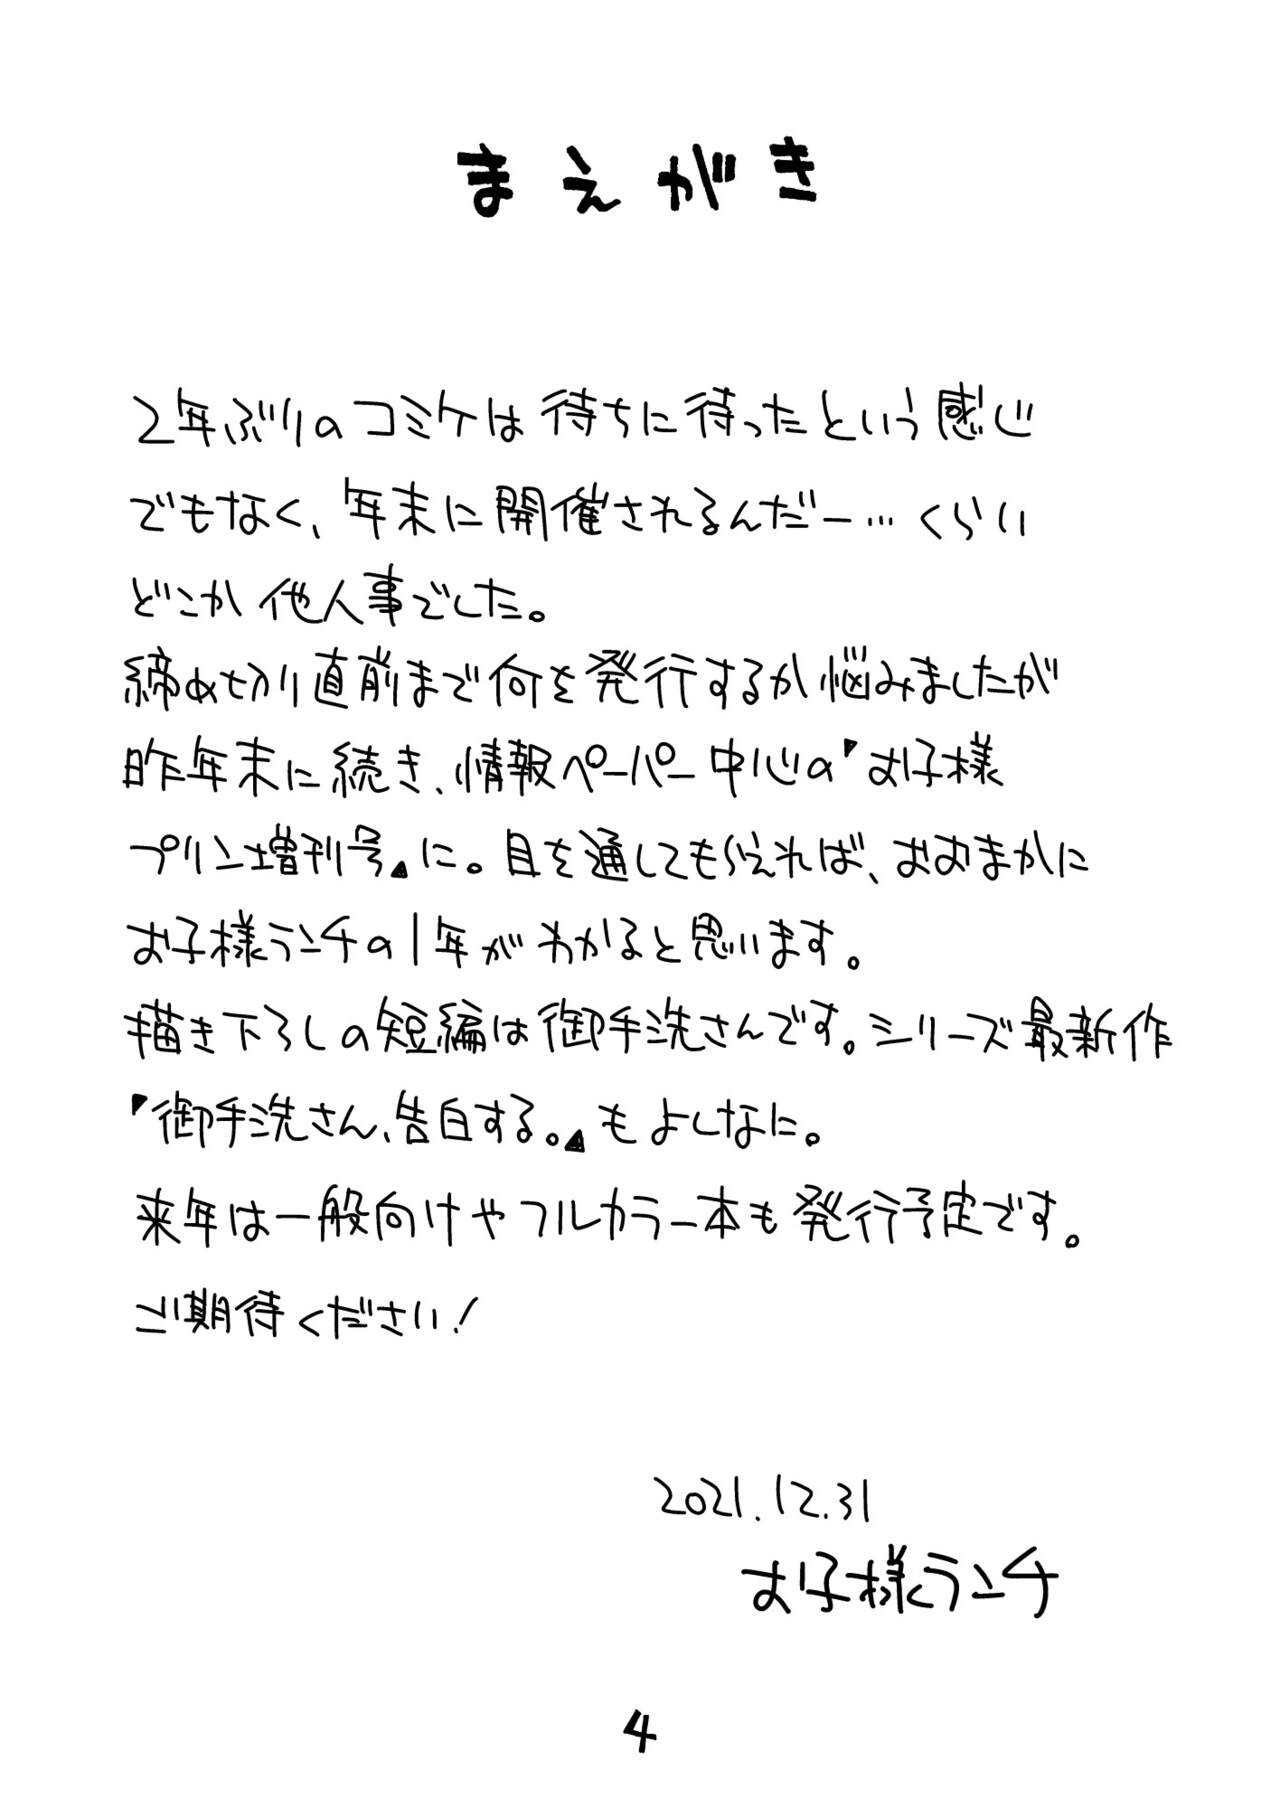 まえがき
2年ぶりのコミケは待ちに待ったという感じ
でもなく、年末に開催されるんだー…くらい
どこか他人事でした。
締め切り直前まで何を発行するか悩みましたが
昨年末に続き、情報ペーパー中心の『お子様
プリン増刊号』に。目を通してもらえれば、おおまかに
お子様ランチの1年がわかると思います。
描き下ろしの短編は御手洗さんです。シリーズ最新作
『御手洗さん、告白する。』もよしなに。
来年は一般向けやフルカラー本も発行予定です。
ご期待ください!
2021.12.31
お子様ランチ
4